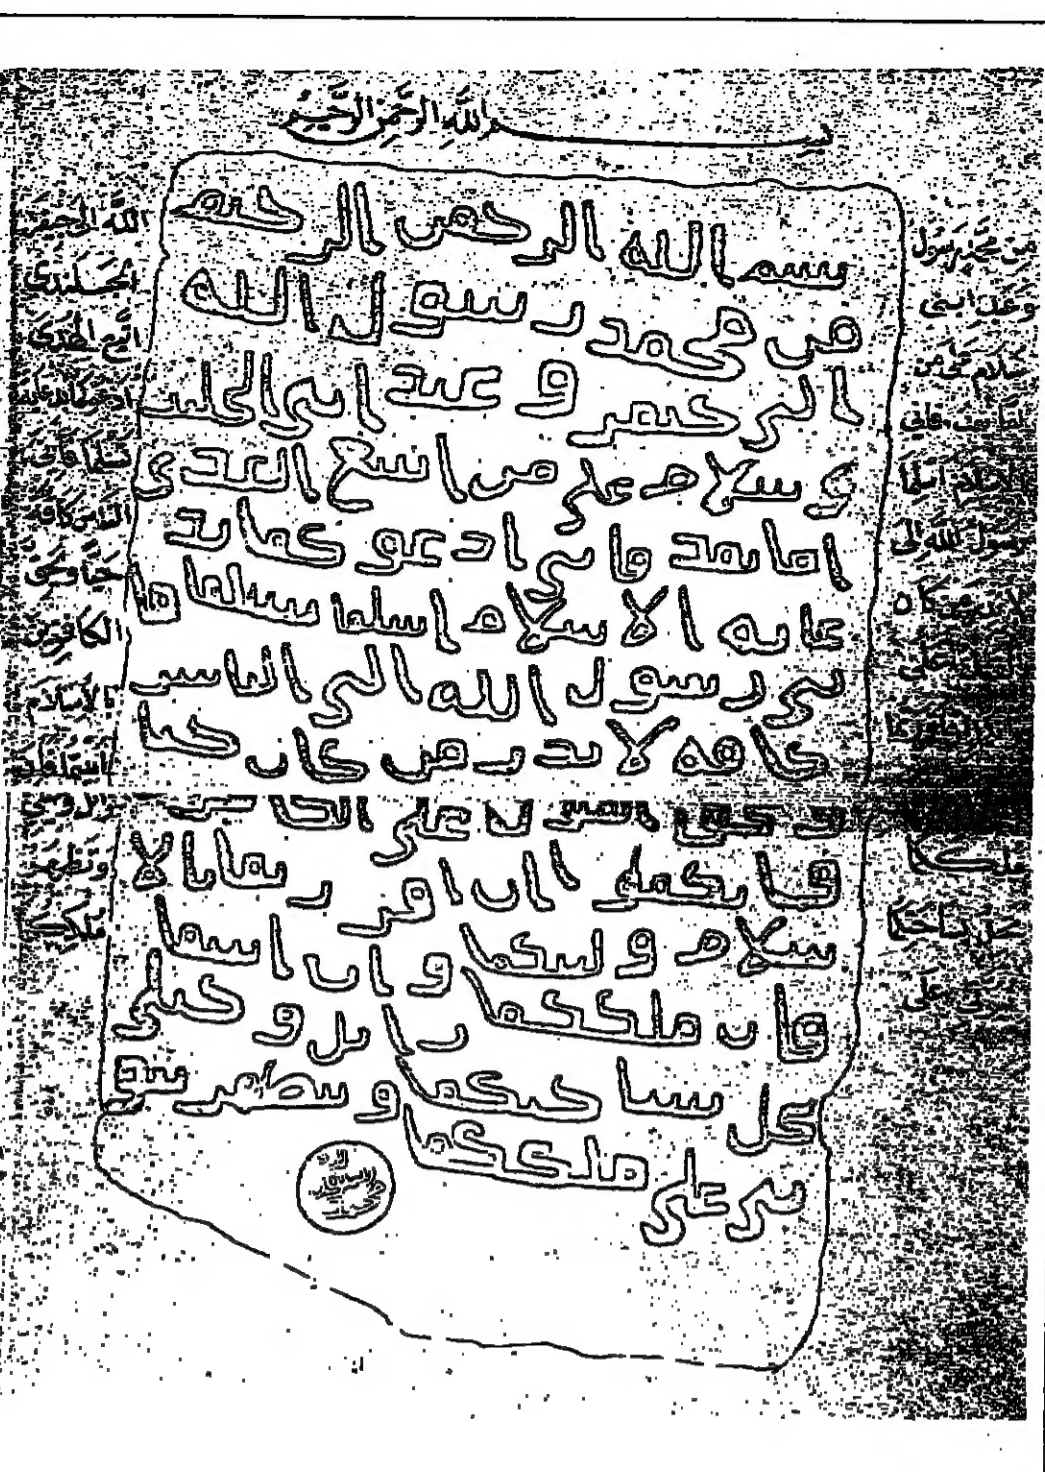 بسم الله الرحمن الرحيم
بسم الله الرحمن الرحيم
من محمد رسول الله
الى جيفر و عبد ابنى الجلند
ى سلام على من اتبع الهدى
اما بعد فانى ادعوكما بد
عايه الاسلام اسلما تسلما فا
نى رسول الله الى الناس
كافه لانذر من كان حيا
و يحق القول على الكافرين
فانكما ان اقررتما بالا
سلام وليتكما و ان ابيتما
فان ملككما زايل و خيلى
تحل بساحتكما و تظهر نبو
تى على ملككما
الله
رسول
محمد
من محمد رسول
وعبد ابنى
سلام على من
أما بعد فانى
الاسلام أسلما
رسول الله الى
الله الى جيفر
الجلندى
اتبع الهدى
تسلما فانى
الناس كافة
حيا ويحق
الكافرين
بالأسلام
وتظهر
ملككما